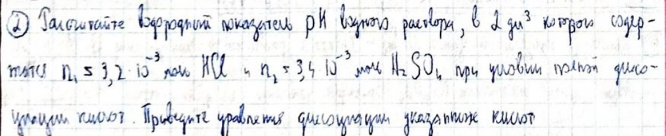 ② Рассчитайте водородный показатель pH водного раствора, в 2 дм³ которого содер-
жатся n₁ = 3,2·10⁻³ моль HCl и n₂ = 3,4·10⁻³ моль H₂SO₄ при условии полной диссо-
циации кислот. Приведите уравнения диссоциации указанных кислот